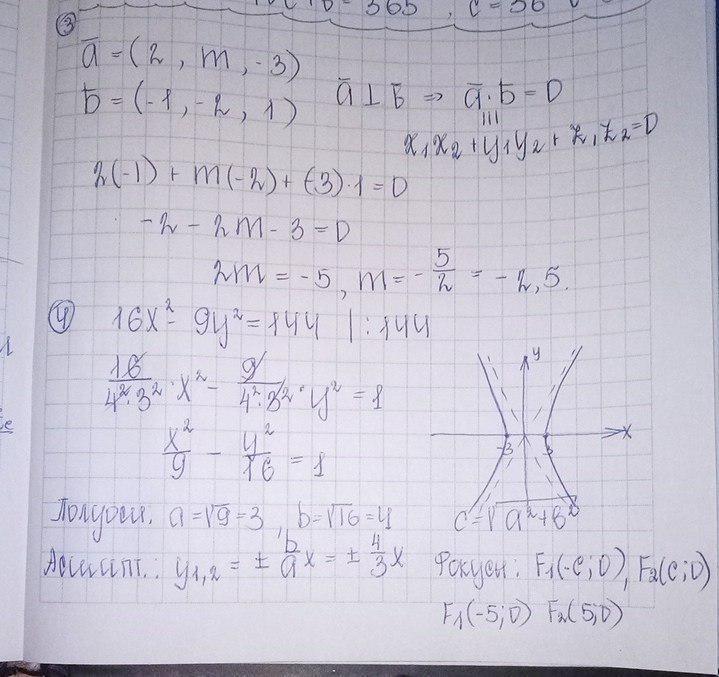 = 365 , c = 56
③
ā = (2 , m , -3)
b̄ = (-1 , -2 , 1)
ā ⊥ b̄ ⇒ ā · b̄ = 0
x₁x₂ + y₁y₂ + z₁z₂ = 0
2(-1) + m(-2) + (-3)·1 = 0
-2 - 2m - 3 = 0
2m = -5 , m = -5/2 = -2,5.
④ 16x² - 9y² = 144 | : 144
16/(4²·3²) · x² - 9/(4²·3²) · y² = 1
x²/9 - y²/16 = 1
y
x
-3 3
Полуоси. a = √9 = 3 , b = √16 = 4
c = √a² + b²
Асимпт.: y₁,₂ = ± b/a x = ± 4/3 x
Фокусы: F₁(-c; 0), F₂(c; 0)
F₁(-5; 0) F₂(5; 0)